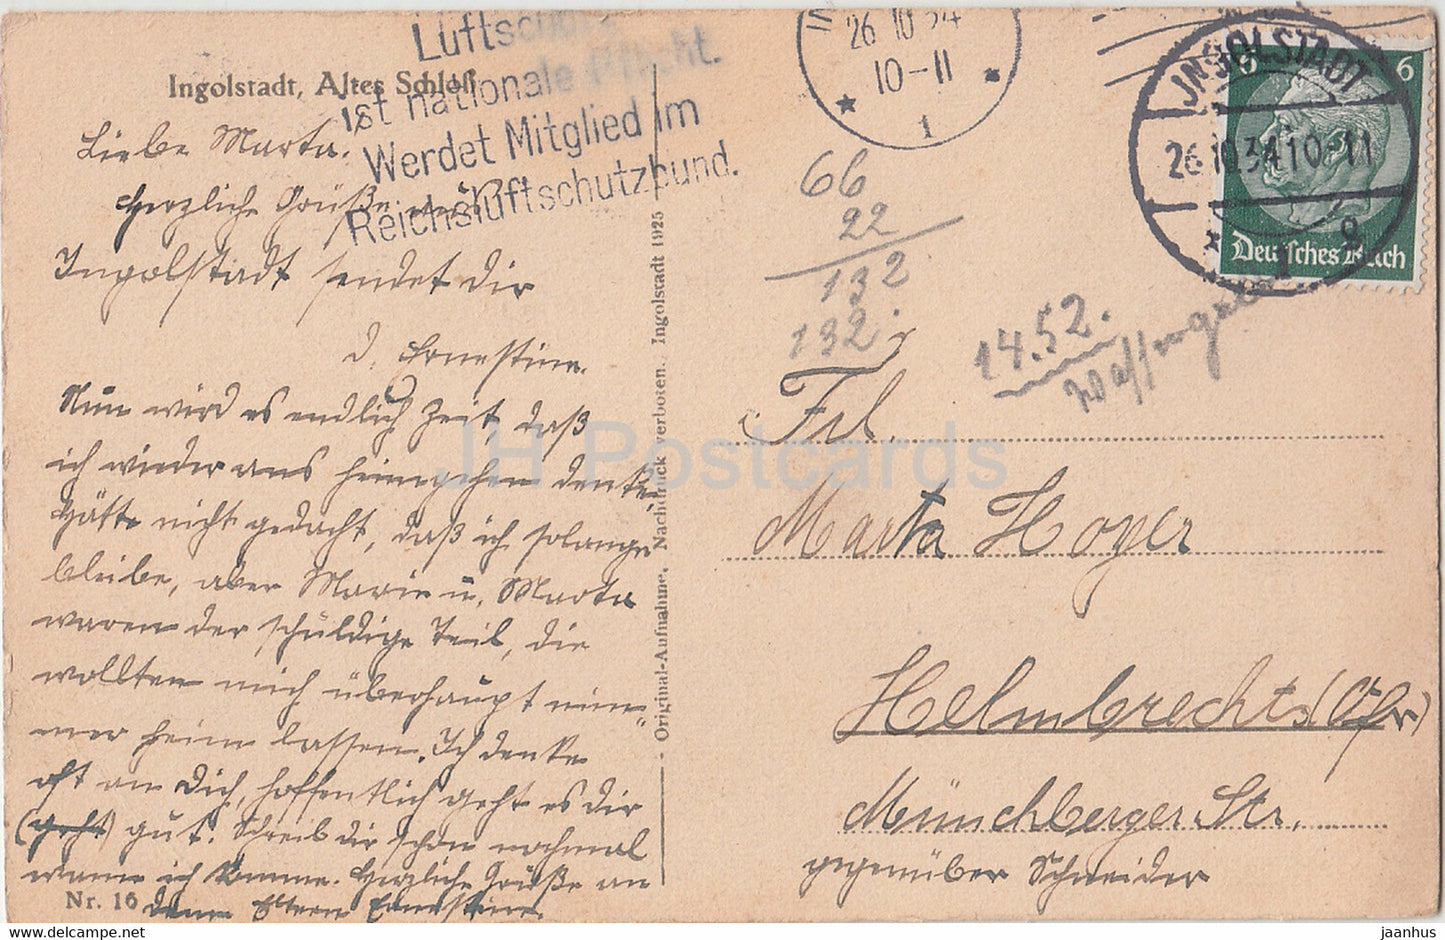 Luftschutz
ist nationale Pflicht.
Werdet Mitglied im
Reichsluftschutzbund.
26 10 34
10-11
1
INGOLSTADT
26.10.34 10-11
1 g
6 6
Deutsches Reich
Ingolstadt, Altes Schloß
Liebe Marta.
Herzliche Grüße aus
Ingolstadt sendet dir
d. Ernestine.
Nun wird es endlich Zeit, daß
ich wieder ans heimgehen denke,
Hätte nicht gedacht, daß ich solange
bleibe, aber Marie u. Marta
waren der schuldige Teil, die
wollten mich überhaupt nim-
mer heim lassen. Ich denke
oft an Dich, hoffentlich geht es dir
(geht) gut. Schreib dir schon nochmal
wann ich komme. Herzliche Grüße an
deine Eltern Ernestine.
Nr. 16
Original-Aufnahme. Nachdruck verboten. Ingolstadt 1925
66
22
132
132
14.52.
Frl.
Marta Hoyer
Helmbrechts (Ofr)
Münchberger Str.
gegenüber Schneider
JH Postcards
jaanhus